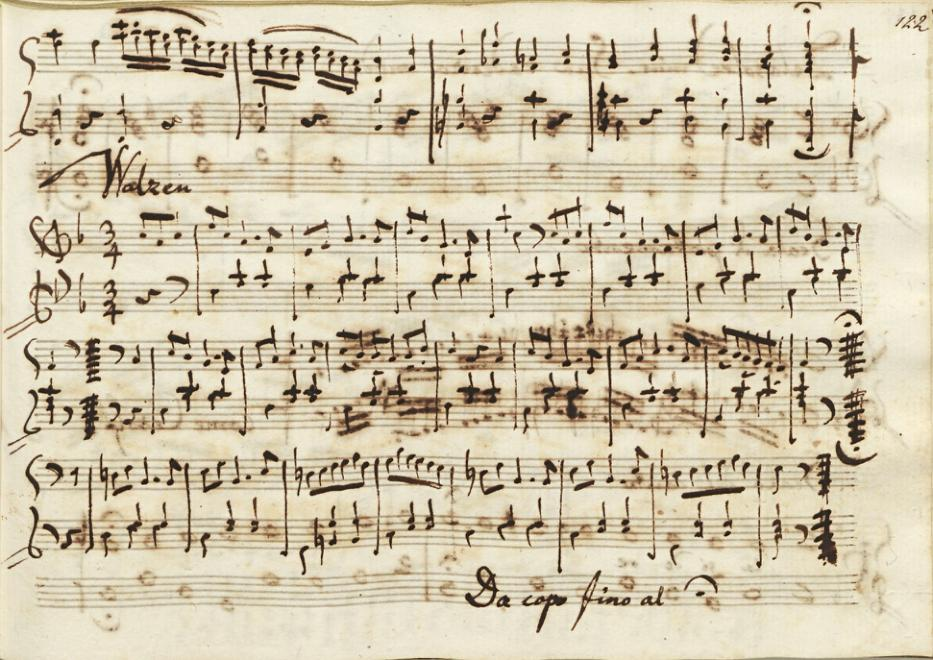 122
Walzen
3
4
3
4
Da capo fino al